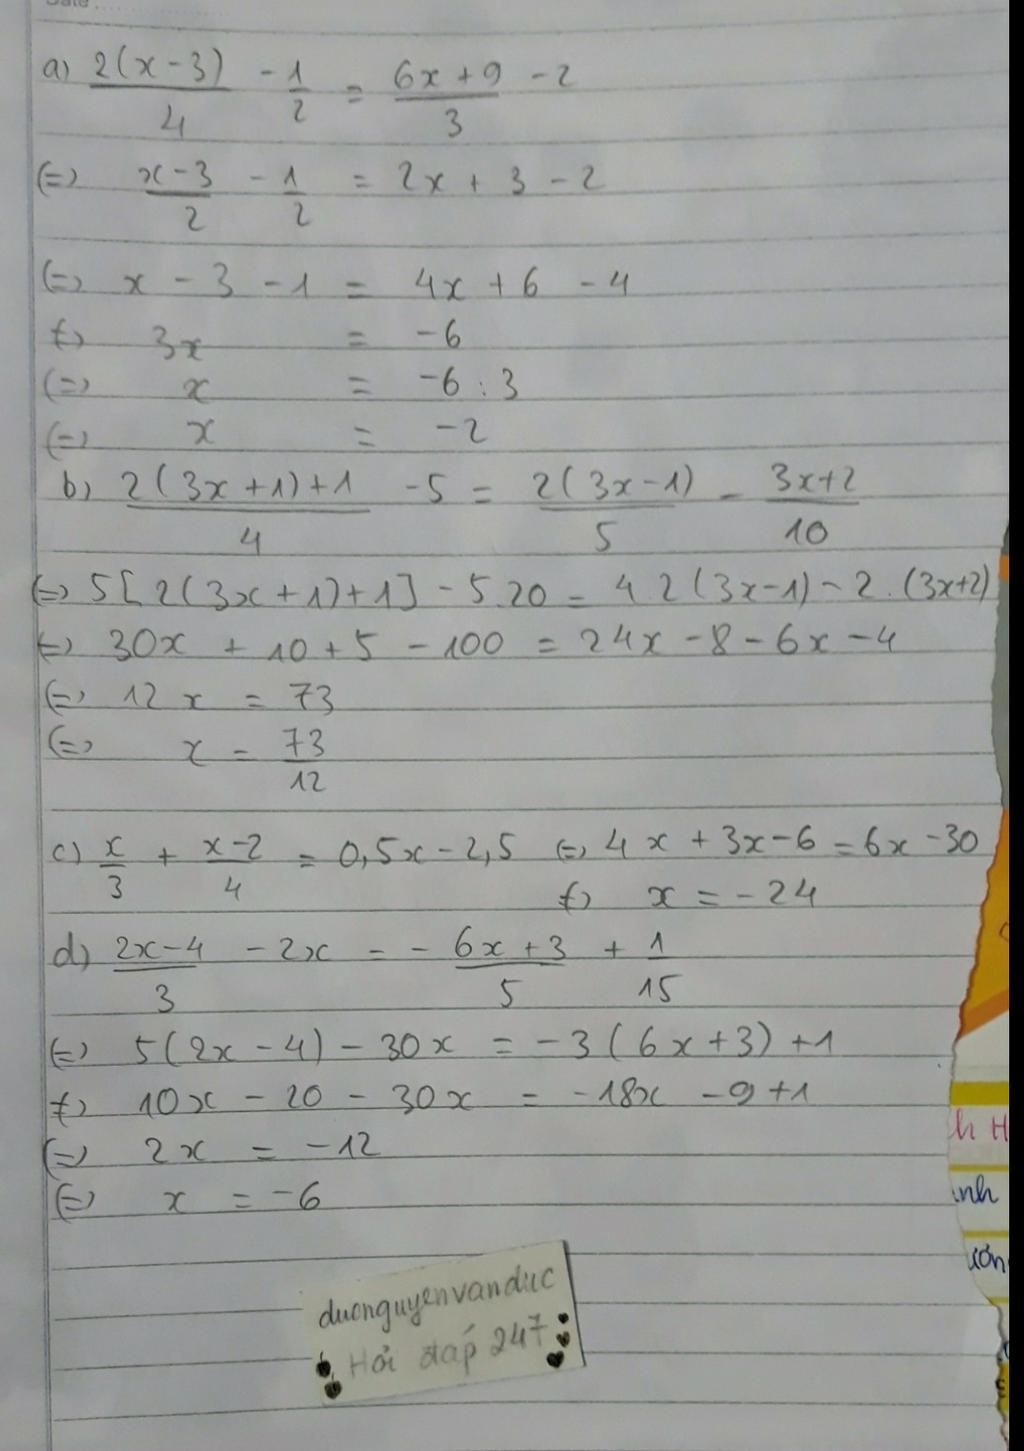 a) 2(x-3)/4 - 1/2 = 6x+9/3 - 2
(=) x-3/2 - 1/2 = 2x + 3 - 2
(=) x - 3 - 1 = 4x + 6 - 4
(=) 3x = -6
(=) x = -6 : 3
(=) x = -2
b) 2(3x+1)+1/4 - 5 = 2(3x-1)/5 - 3x+2/10
(=) 5[2(3x+1)+1] - 5.20 = 4 2(3x-1) - 2.(3x+2)
(=) 30x + 10 + 5 - 100 = 24x - 8 - 6x - 4
(=) 12x = 73
(=) x = 73/12
c) x/3 + x-2/4 = 0,5x - 2,5 (=) 4x + 3x - 6 = 6x - 30
(=) x = -24
d) 2x-4/3 - 2x = - 6x+3/5 + 1/15
(=) 5(2x-4) - 30x = -3(6x+3) + 1
(=) 10x - 20 - 30x = -18x - 9 + 1
(=) 2x = -12
(=) x = -6
duonguyenvanduc
Hỏi đáp 247